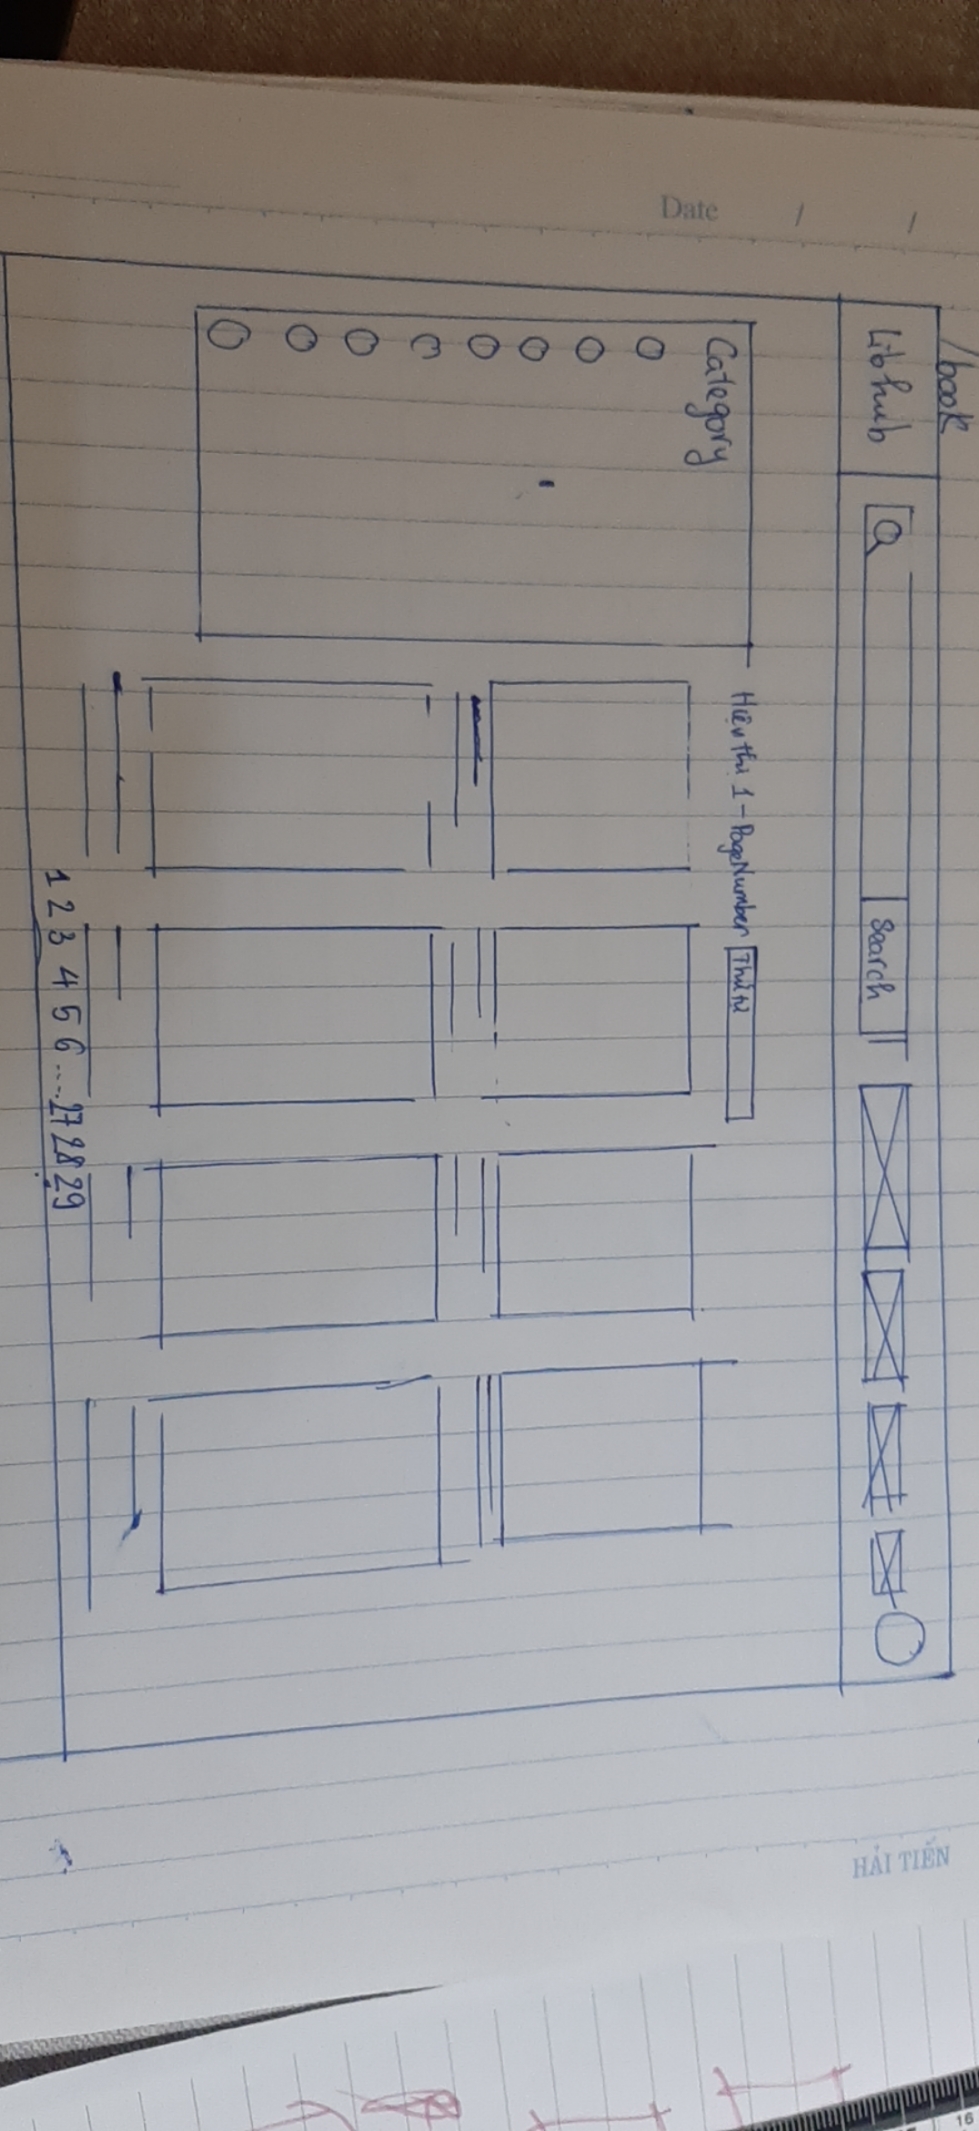 Date / /
/book
Libhub
Search
Category
Hiển thị 1 - PageNumber
Thứ tự
1 2 3 4 5 6 ... 27 28 29
HẢI TIẾN
16